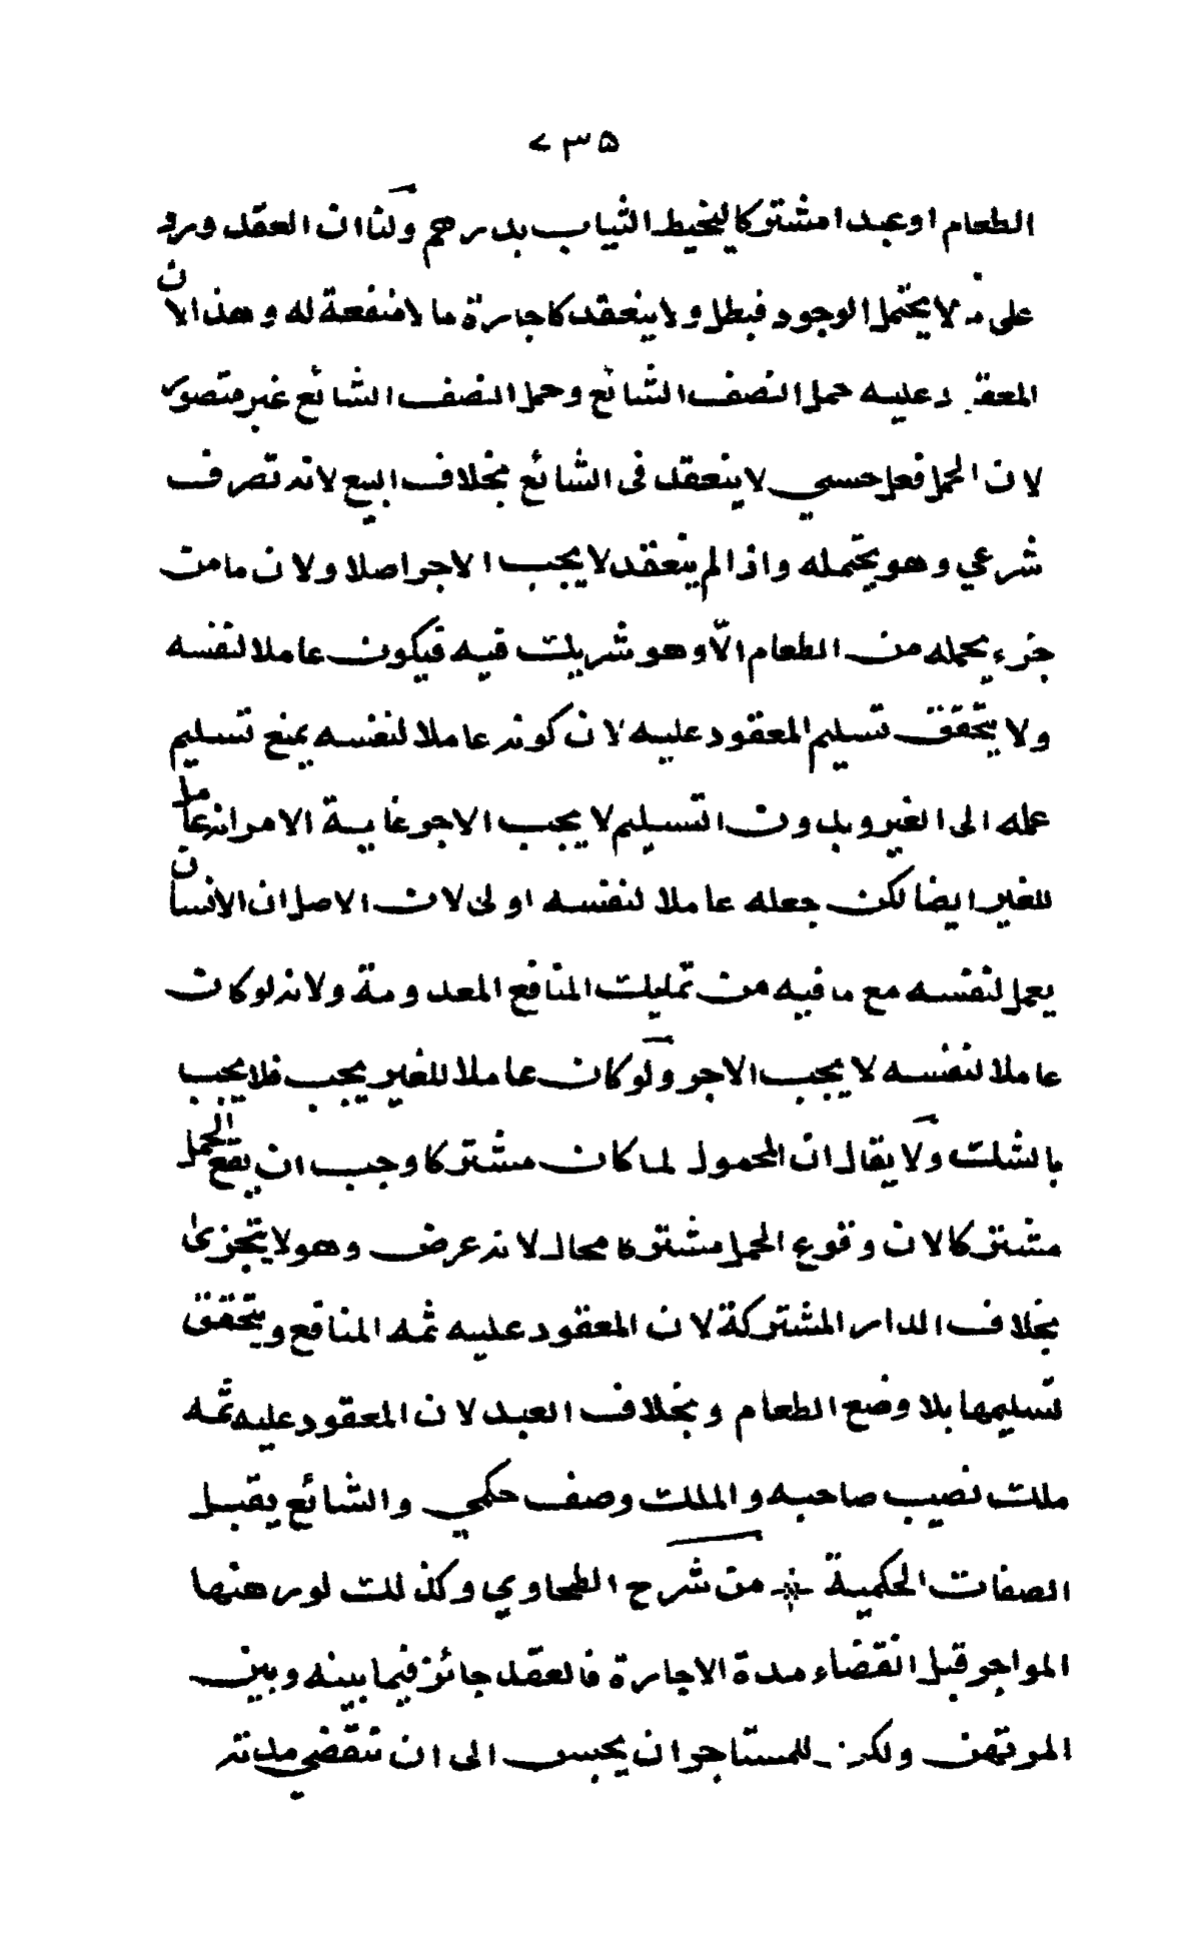 ٧٣٥
الطعام او عبدا مشتركا ليخيط الثياب بدرهم ولنا ان العقد ورد
على لا يحتمل الوجود فبطل ولا ينعقد كاجارة ما لا منفعة له وهذا لان
المعقود عليه حمل النصف الشائع وحمل النصف الشائع غير متصور
لان الحمل فعل حسي لا ينعقد فى الشائع بخلاف البيع لانه تصرف
شرعي وهو يحتمله واذا لم ينعقد لا يجب الاجر اصلا ولان ما من
جزء يحمله من الطعام الّا وهو شريك فيه فيكون عاملا لنفسه
ولا يتحقق تسليم المعقود عليه لان كونه عاملا لنفسه يمنع تسليم
عمله الى الغير وبدون التسليم لا يجب الاجر غاية الامر انه عامل
للغير ايضا لكن جعله عاملا لنفسه اولى لان الاصل ان الانسان
يعمل لنفسه مع ما فيه من تمليك المنافع المعدومة ولانه لو كان
عاملا لنفسه لا يجب الاجر ولو كان عاملا للغير يجب فلا يجب
بالشك ولا يقال ان المحمول لما كان مشتركا وجب ان يقع الحمل
مشتركا لان وقوع الحمل مشتركا محال لانه عرض وهو لا يتجزى
بخلاف الدار المشتركة لان المعقود عليه ثمه المنافع ويتحقق
تسليمها بلا وضع الطعام وبخلاف العبد لان المعقود عليه ثمه
ملك نصيب صاحبه والملك وصف حكمي والشائع يقبل
الصفات الحكمية من شرح الطحاوي وكذلك لو رهنها
المواجر قبل انقضاء مدة الاجارة فالعقد جائز فيما بينه وبين
المرتهن ولكن للمستاجر ان يحبس الى ان تنقضي مدته